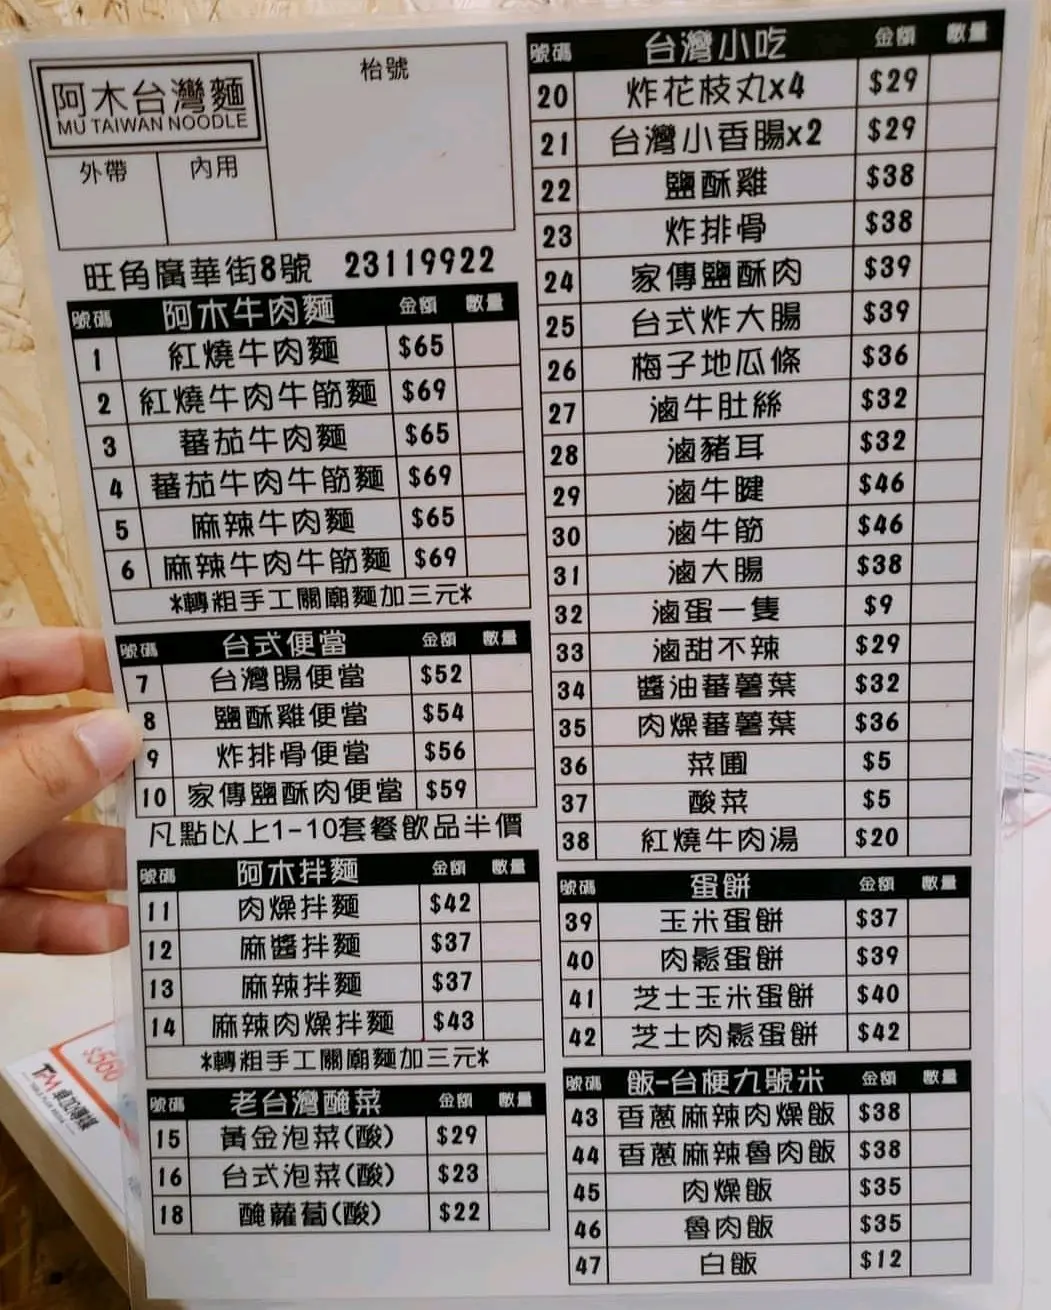 阿木台灣麵
MU TAIWAN NOODLE
枱號
外帶 內用
旺角廣華街8號 23119922
號碼 阿木牛肉麵 金額 數量
1 紅燒牛肉麵 $65
2 紅燒牛肉牛筋麵 $69
3 蕃茄牛肉麵 $65
4 蕃茄牛肉牛筋麵 $69
5 麻辣牛肉麵 $65
6 麻辣牛肉牛筋麵 $69
*轉粗手工關廟麵加三元*
號碼 台式便當 金額 數量
7 台灣腸便當 $52
8 鹽酥雞便當 $54
9 炸排骨便當 $56
10 家傳鹽酥肉便當 $59
凡點以上1-10套餐飲品半價
號碼 阿木拌麵 金額 數量
11 肉燥拌麵 $42
12 麻醬拌麵 $37
13 麻辣拌麵 $37
14 麻辣肉燥拌麵 $43
*轉粗手工關廟麵加三元*
號碼 老台灣醃菜 金額 數量
15 黃金泡菜(酸) $29
16 台式泡菜(酸) $23
18 醃蘿蔔(酸) $22
號碼 台灣小吃 金額 數量
20 炸花枝丸x4 $29
21 台灣小香腸x2 $29
22 鹽酥雞 $38
23 炸排骨 $38
24 家傳鹽酥肉 $39
25 台式炸大腸 $39
26 梅子地瓜條 $36
27 滷牛肚絲 $32
28 滷豬耳 $32
29 滷牛腱 $46
30 滷牛筋 $46
31 滷大腸 $38
32 滷蛋一隻 $9
33 滷甜不辣 $29
34 醬油蕃薯葉 $32
35 肉燥蕃薯葉 $36
36 菜圃 $5
37 酸菜 $5
38 紅燒牛肉湯 $20
號碼 蛋餅 金額 數量
39 玉米蛋餅 $37
40 肉鬆蛋餅 $39
41 芝士玉米蛋餅 $40
42 芝士肉鬆蛋餅 $42
號碼 飯-台梗九號米 金額 數量
43 香蔥麻辣肉燥飯 $38
44 香蔥麻辣魯肉飯 $38
45 肉燥飯 $35
46 魯肉飯 $35
47 白飯 $12